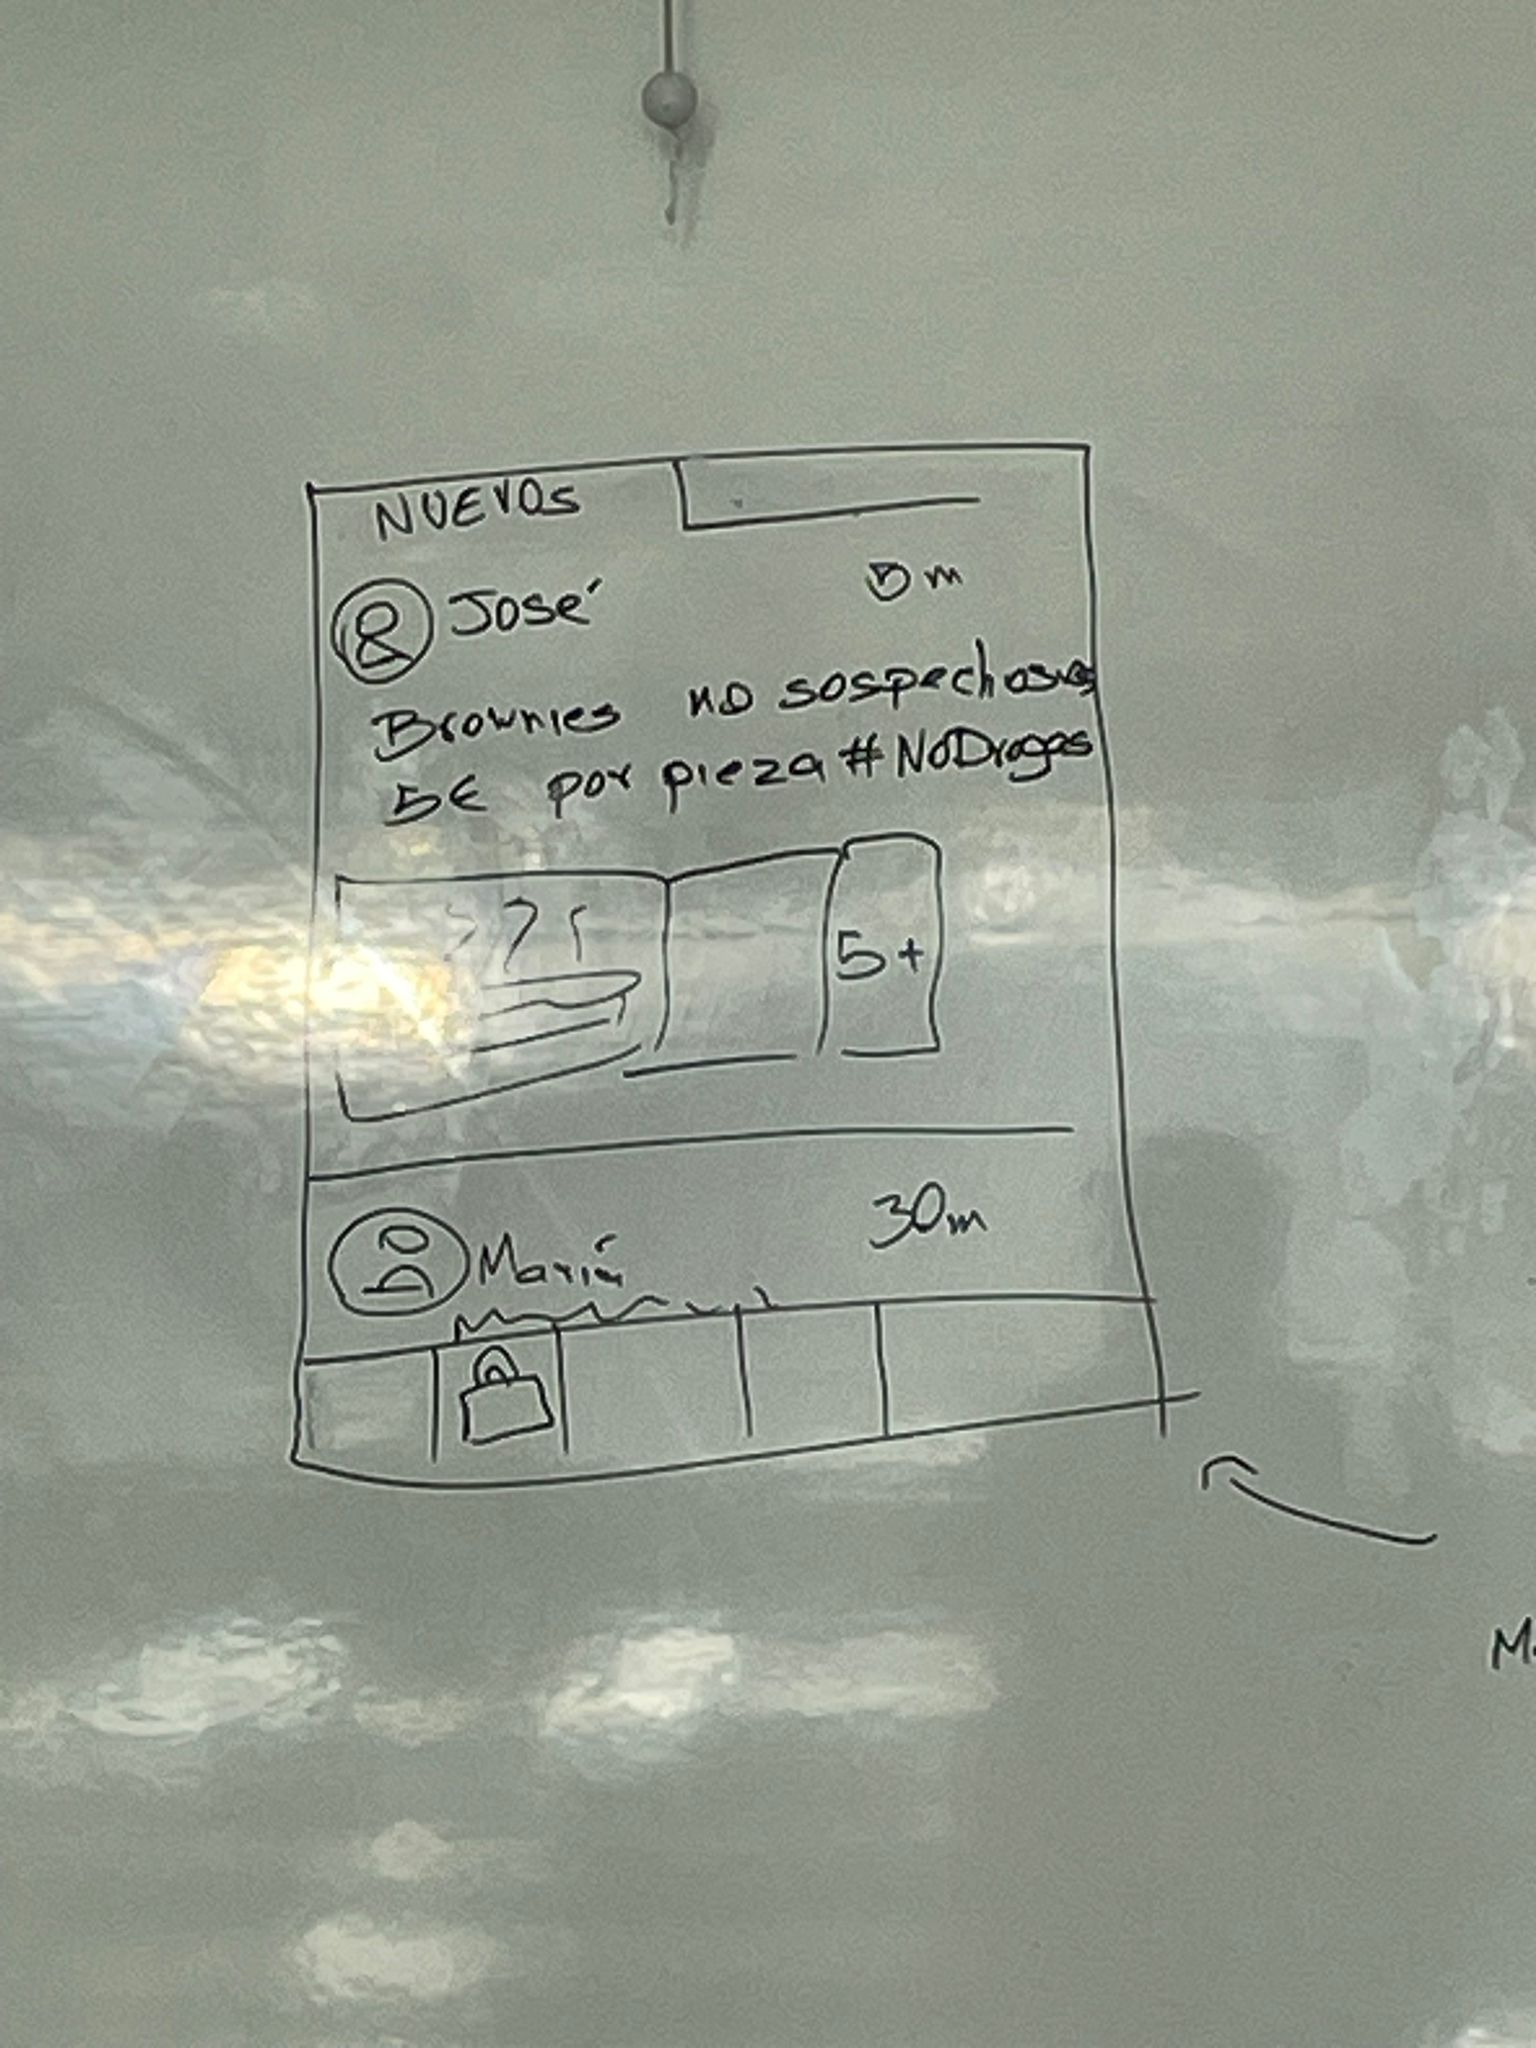 NUEVOS
José 5m
Brownies no sospechosos
5€ por pieza #NoDrogas
5+
María 30m